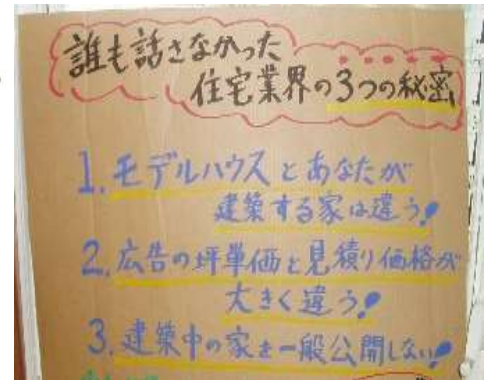 誰も話さなかった
住宅業界の3つの秘密
1. モデルハウスとあなたが
建築する家は違う!
2. 広告の坪単価と見積り価格が
大きく違う!
3. 建築中の家を一般公開しない!